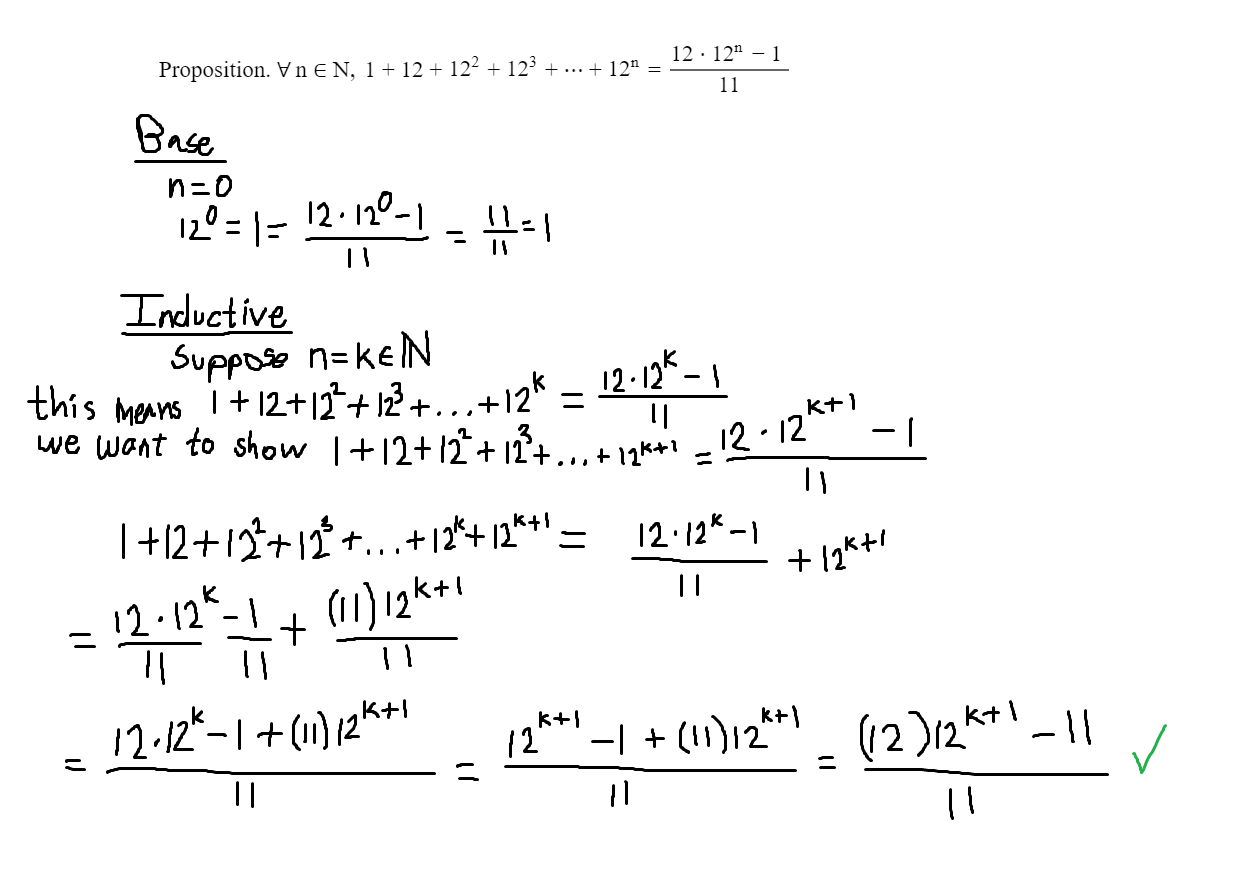 Proposition. ∀ n ∈ N, 1 + 12 + 12² + 12³ + ⋯ + 12ⁿ = (12 · 12ⁿ − 1)/11
Base
n=0
12⁰ = 1 = (12·12⁰−1)/11 = 11/11 = 1
Inductive
Suppose n=k∈ℕ
this means 1+12+12²+12³+...+12^k = (12·12^k − 1)/11
we want to show 1+12+12²+12³+...+12^(k+1) = (12·12^(k+1) − 1)/11
1+12+12²+12³+...+12^k+12^(k+1) = (12·12^k−1)/11 + 12^(k+1)
= (12·12^k)/11 − 1/11 + ((11)12^(k+1))/11
= (12·12^k−1+(11)12^(k+1))/11 = (12^(k+1)−1+(11)12^(k+1))/11 = ((12)12^(k+1)−11)/11 ✓